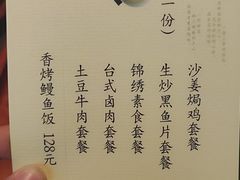 一份）
沙姜焗鸡套餐
生炒黑鱼片套餐
锦绣素食套餐
台式卤肉套餐
土豆牛肉套餐
香烤鳗鱼饭 128元